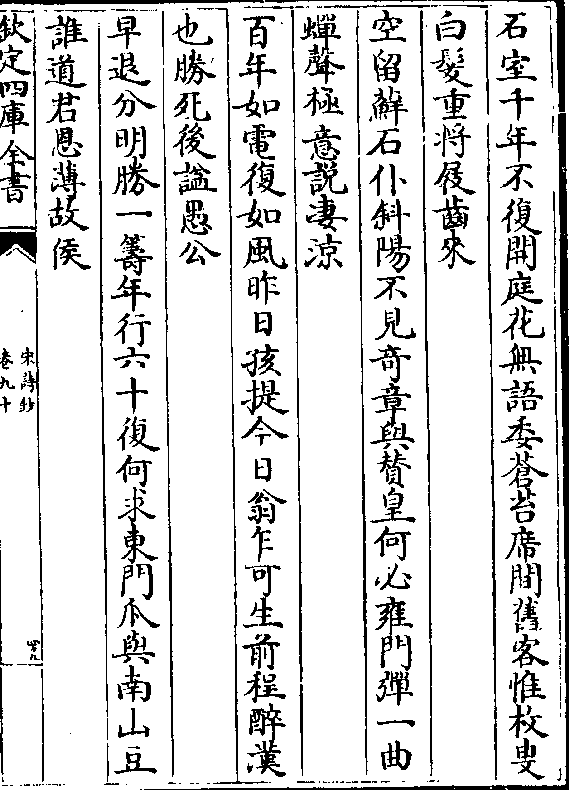 石室千年不復開庭花無語委蒼苔席間舊客惟枚叟
白髮重將屐齒來
空留蘚石仆斜陽不見奇章與贊皇何必雍門彈一曲
蟬聲極意説凄涼
百年如電復如風昨日孩提今日翁乍可生前程醉漢
也勝死後諡愚公
早退分明勝一籌年行六十復何求東門瓜與南山豆
誰道君恩薄故侯
欽定四庫全書
宋詩鈔
卷九十
四九